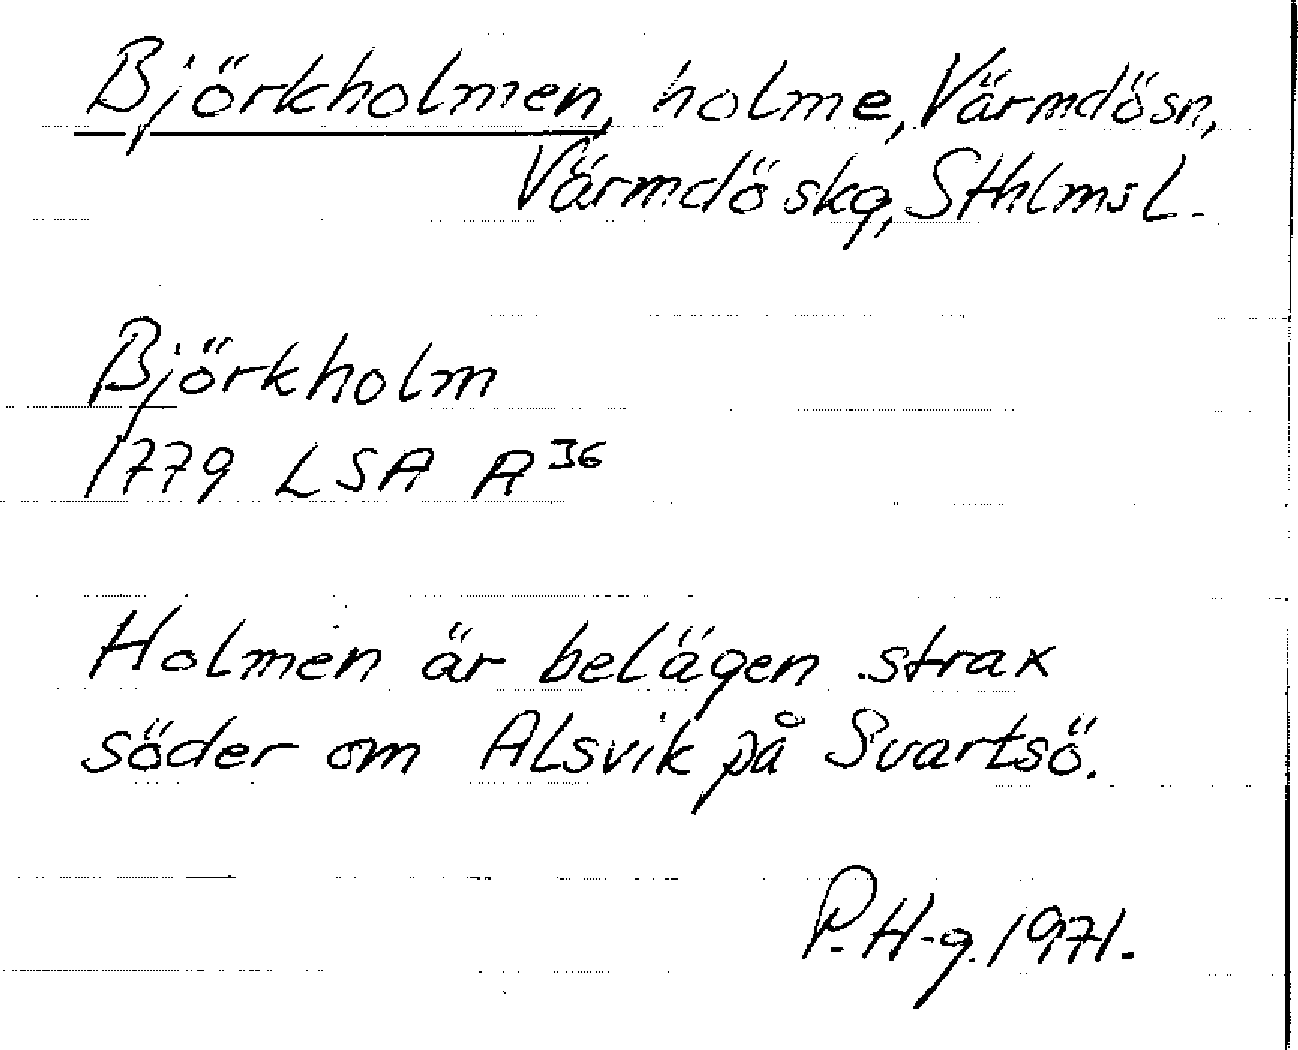 Björkholmen, holme, Värmdö sn,
Värmdö skg, Sthlms L.
Björkholm
1779 LSA A 36
Holmen är belägen strax
söder om Alsvik på Svartsö.
P. H-g. 1971.